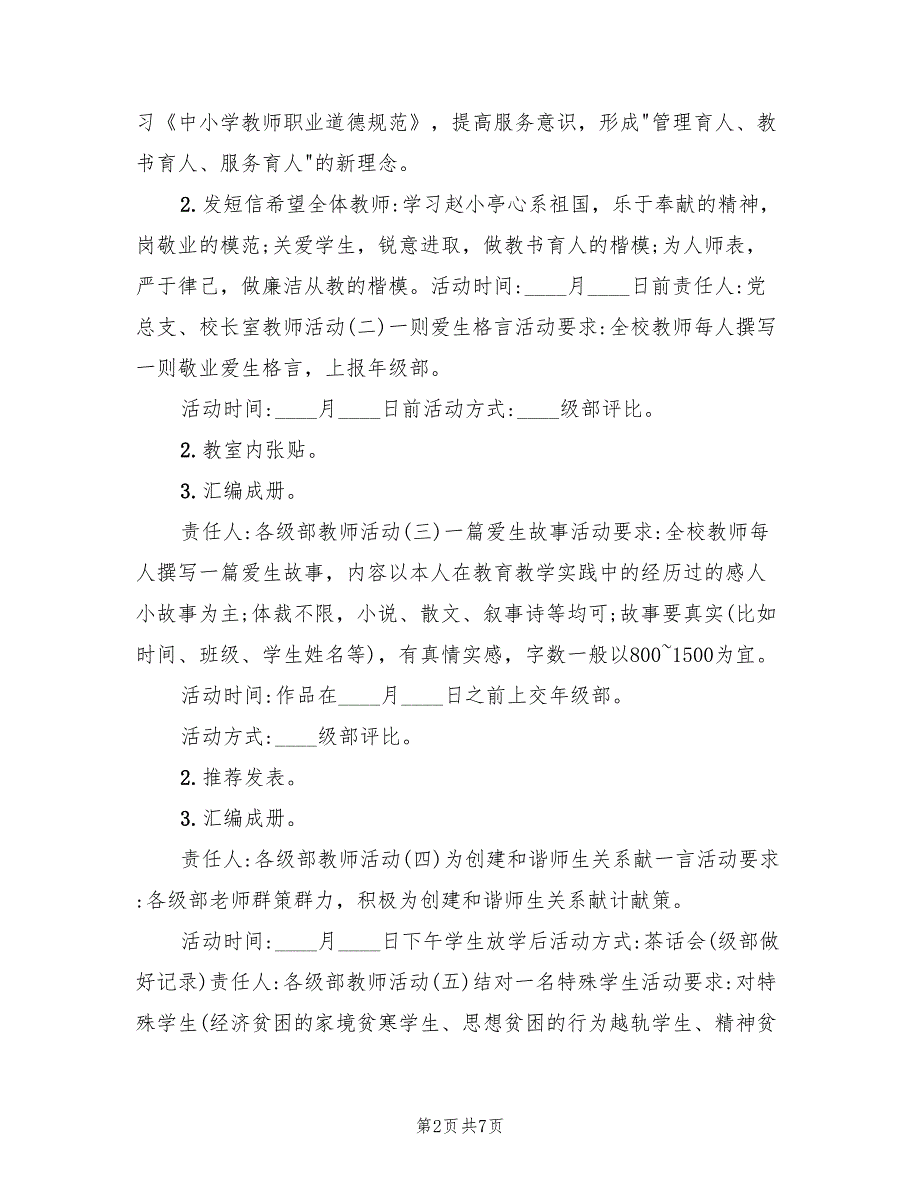 习《中小学教师职业道德规范》，提高服务意识，形成"管理育人、教
书育人、服务育人"的新理念。
2.发短信希望全体教师:学习赵小亭心系祖国，乐于奉献的精神，
岗敬业的模范;关爱学生，锐意进取，做教书育人的楷模;为人师表，
严于律己，做廉洁从教的楷模。活动时间:____月____日前责任人:党
总支、校长室教师活动(二)一则爱生格言活动要求:全校教师每人撰写
一则敬业爱生格言，上报年级部。
活动时间:____月____日前活动方式:____级部评比。
2.教室内张贴。
3.汇编成册。
责任人:各级部教师活动(三)一篇爱生故事活动要求:全校教师每
人撰写一篇爱生故事，内容以本人在教育教学实践中的经历过的感人
小故事为主;体裁不限，小说、散文、叙事诗等均可;故事要真实(比如
时间、班级、学生姓名等)，有真情实感，字数一般以800~1500为宜。
活动时间:作品在____月____日之前上交年级部。
活动方式:____级部评比。
2.推荐发表。
3.汇编成册。
责任人:各级部教师活动(四)为创建和谐师生关系献一言活动要求
:各级部老师群策群力，积极为创建和谐师生关系献计献策。
活动时间:____月____日下午学生放学后活动方式:茶话会(级部做
好记录)责任人:各级部教师活动(五)结对一名特殊学生活动要求:对特
殊学生(经济贫困的家境贫寒学生、思想贫困的行为越轨学生、精神贫
第2页共7页